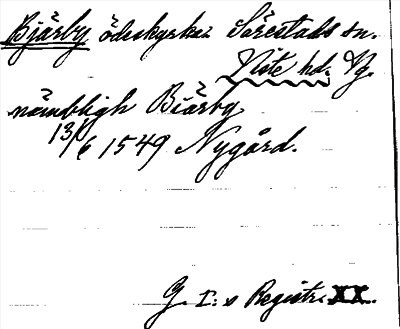 Bjärby ödeskyrka Särestads sn.
Åse hd. Vg.
nämbligh Biärby
13/6 1549 Nygård.
G. I:s Registr. XX.